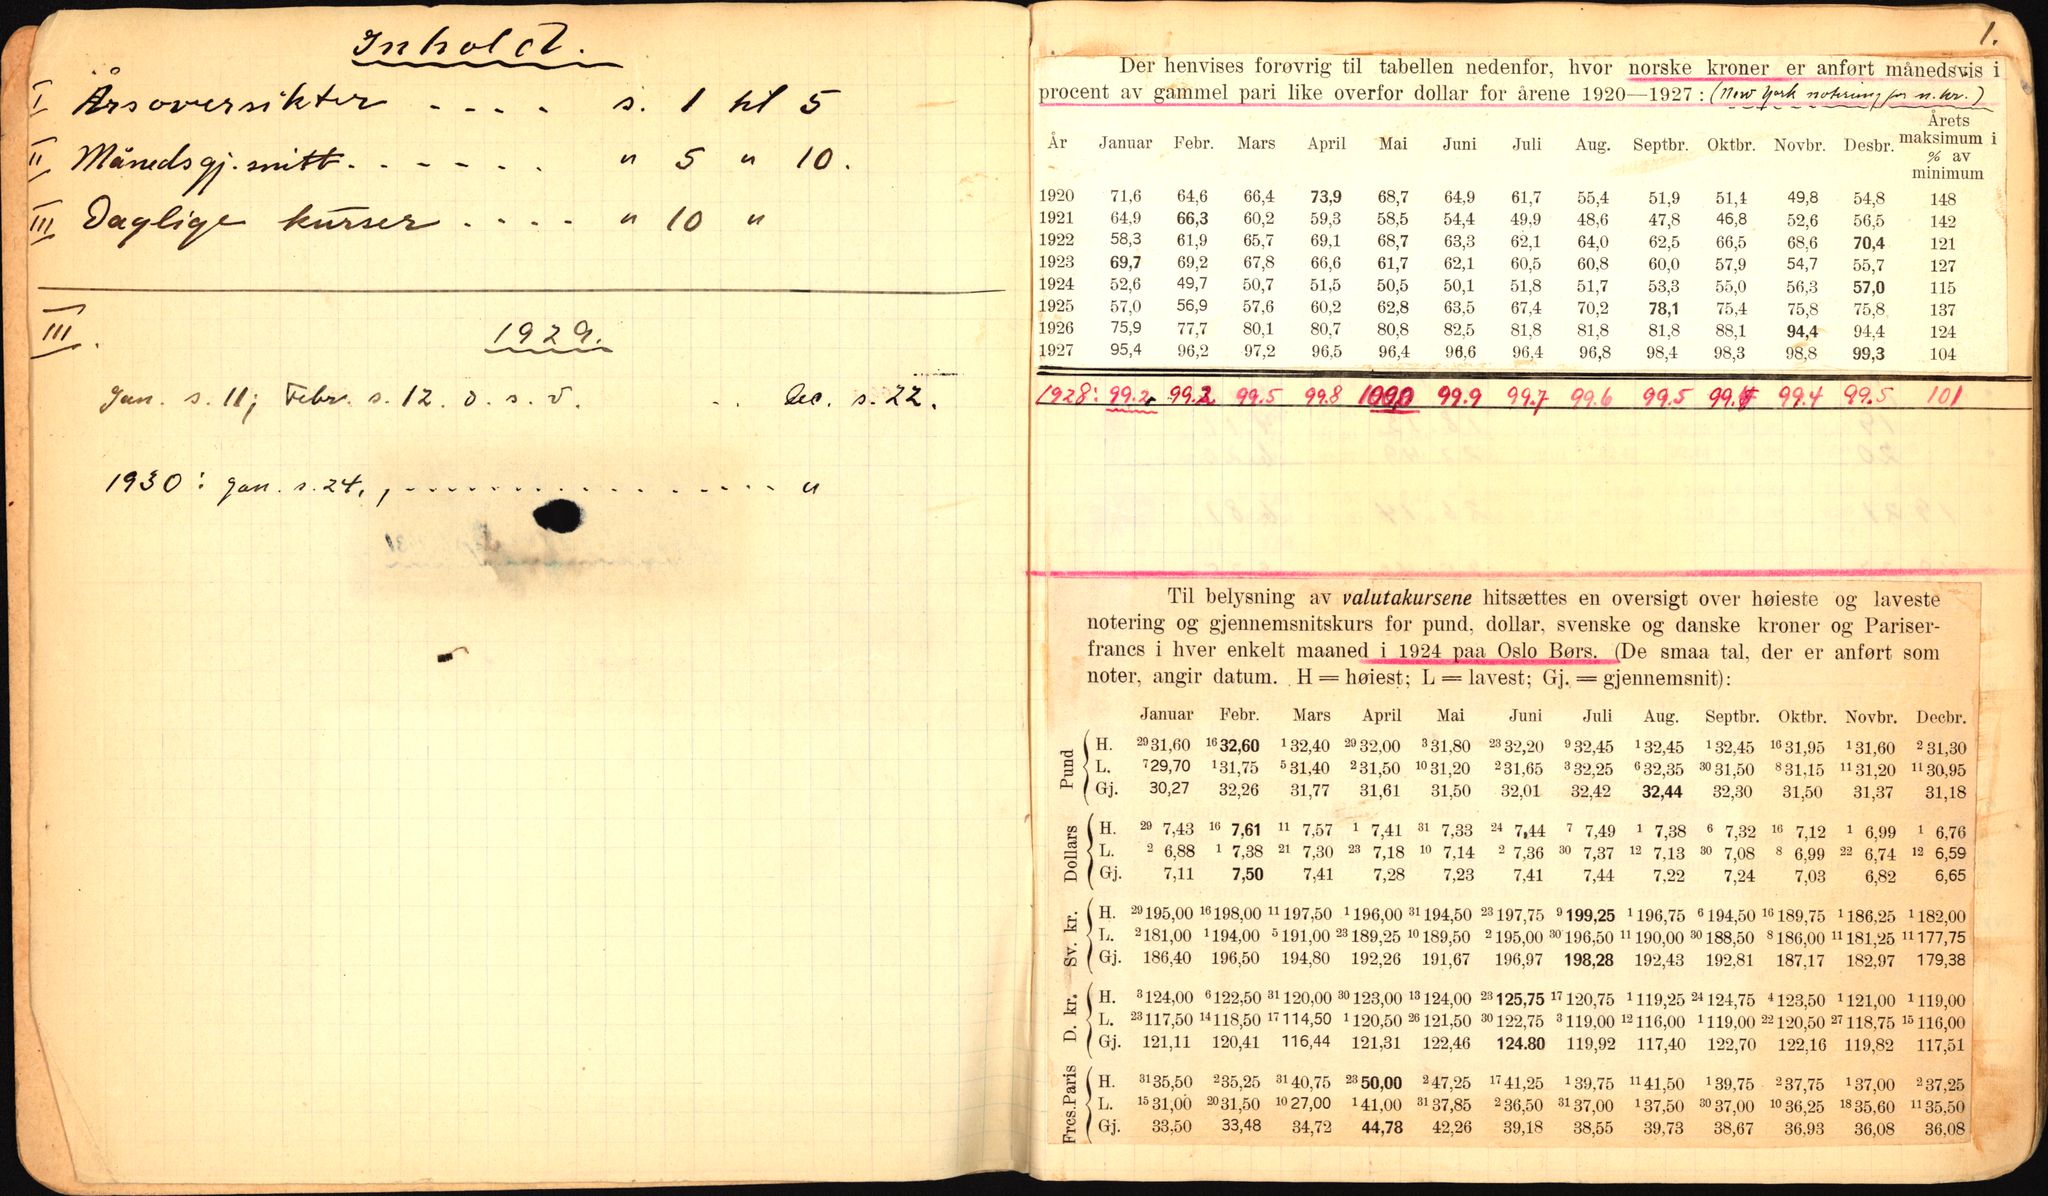 Inhold.
I Årsoversikter - - - - s. 1 til 5
II Månedsgj.snitt - - - - - - " 5 " 10.
III Daglige kurser - - - - " 10 "
III. 1929.
Jan. s. 11; Febr. s. 12. o. s. v. - - Dec. s. 22.
1930: Jan. s. 24, - - - - - - - - - - "
1.
Der henvises forøvrig til tabellen nedenfor, hvor norske kroner er anført månedsvis i
procent av gammel pari like overfor dollar for årene 1920—1927: (New York notering for n. kr.)
År Januar Febr. Mars April Mai Juni Juli Aug. Septbr. Oktbr. Novbr. Desbr. Årets maksimum i % av minimum
1920 71,6 64,6 66,4 73,9 68,7 64,9 61,7 55,4 51,9 51,4 49,8 54,8 148
1921 64,9 66,3 60,2 59,3 58,5 54,4 49,9 48,6 47,8 46,8 52,6 56,5 142
1922 58,3 61,9 65,7 69,1 68,7 63,3 62,1 64,0 62,5 66,5 68,6 70,4 121
1923 69,7 69,2 67,8 66,6 61,7 62,1 60,5 60,8 60,0 57,9 54,7 55,7 127
1924 52,6 49,7 50,7 51,5 50,5 50,1 51,8 51,7 53,3 55,0 56,3 57,0 115
1925 57,0 56,9 57,6 60,2 62,8 63,5 67,4 70,2 78,1 75,4 75,8 75,8 137
1926 75,9 77,7 80,1 80,7 80,8 82,5 81,8 81,8 81,8 88,1 94,4 94,4 124
1927 95,4 96,2 97,2 96,5 96,4 96,6 96,4 96,8 98,4 98,3 98,8 99,3 104
1928: 99.2 99.2 99.5 99.8 100,0 99.9 99.7 99.6 99.5 99.4 99.4 99.5 101
Til belysning av valutakursene hitsættes en oversigt over høieste og laveste
notering og gjennemsnitskurs for pund, dollar, svenske og danske kroner og Pariser-
francs i hver enkelt maaned i 1924 paa Oslo Børs. (De smaa tal, der er anført som
noter, angir datum. H = høiest; L = lavest; Gj. = gjennemsnit):
Januar Febr. Mars April Mai Juni Juli Aug. Septbr. Oktbr. Novbr. Decbr.
Pund
H. 29 31,60 16 32,60 1 32,40 29 32,00 3 31,80 23 32,20 9 32,45 1 32,45 1 32,45 16 31,95 1 31,60 2 31,30
L. 7 29,70 1 31,75 5 31,40 2 31,50 10 31,20 2 31,65 3 32,25 6 32,35 30 31,50 8 31,15 11 31,20 11 30,95
Gj. 30,27 32,26 31,77 31,61 31,50 32,01 32,42 32,44 32,30 31,50 31,37 31,18
Dollars
H. 29 7,43 16 7,61 11 7,57 1 7,41 31 7,33 24 7,44 7 7,49 1 7,38 6 7,32 16 7,12 1 6,99 1 6,76
L. 2 6,88 1 7,38 21 7,30 23 7,18 10 7,14 2 7,36 30 7,37 12 7,13 30 7,08 8 6,99 22 6,74 12 6,59
Gj. 7,11 7,50 7,41 7,28 7,23 7,41 7,44 7,22 7,24 7,03 6,82 6,65
Sv. kr.
H. 29 195,00 16 198,00 11 197,50 1 196,00 31 194,50 23 197,75 9 199,25 1 196,75 6 194,50 16 189,75 1 186,25 1 182,00
L. 2 181,00 1 194,00 5 191,00 23 189,25 10 189,50 2 195,00 30 196,50 11 190,00 30 188,50 8 186,00 11 181,25 11 177,75
Gj. 186,40 196,50 194,80 192,26 191,67 196,97 198,28 192,43 192,81 187,17 182,97 179,38
D. kr.
H. 3 124,00 6 122,50 31 120,00 30 123,00 13 124,00 23 125,75 17 120,75 1 119,25 24 124,75 4 123,50 1 121,00 1 119,00
L. 23 117,50 14 118,50 17 114,50 1 120,50 26 121,50 30 122,75 3 119,00 12 116,00 1 119,00 22 120,50 27 118,75 15 116,00
Gj. 121,11 120,41 116,44 121,31 122,46 124.80 119,92 117,40 122,70 122,16 119,82 117,51
Frcs.Paris
H. 31 35,50 2 35,25 31 40,75 23 50,00 2 47,25 17 41,25 1 39,75 11 41,50 1 39,75 2 37,75 1 37,00 2 37,25
L. 15 31,00 20 31,50 10 27,00 1 41,00 31 37,85 2 36,50 31 37,00 1 37,50 30 37,00 10 36,25 18 35,60 11 35,50
Gj. 33,50 33,48 34,72 44,78 42,26 39,18 38,55 39,73 38,67 36,93 36,08 36,08